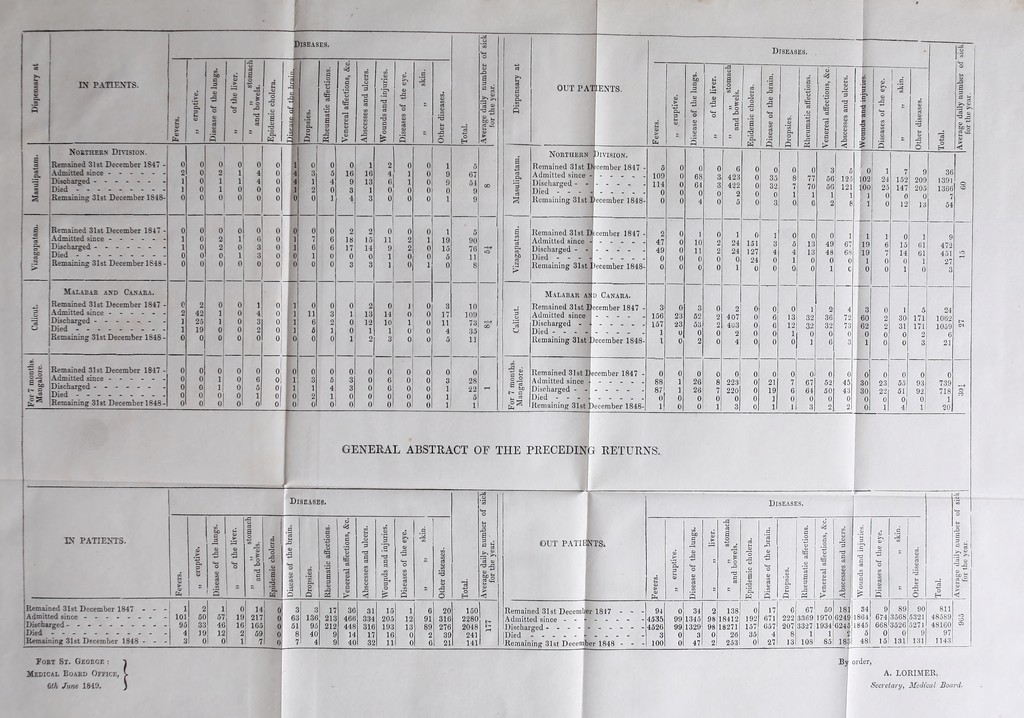 Dispensary at
IN PATIENTS.
DISEASES.
Fevers.
„ eruptive.
Disease of the lungs.
„ of the liver.
„ stomach and bowels.
Epidemic cholera.
Disease of the brain.
Dropsies.
Rheumatic affections.
Venereal affections, &c.
Abscesses and ulcers.
Wounds and injuries.
Diseases of the eye.
„ „ skin.
Other diseases.
Total.
Average daily number of sick for the year.
Masulipatam.
NORTHERN DIVISION.
Remained 31st December 1847 - 0 0 0 0 0 0 1 0 0 0 1 2 0 0 1 5
Admitted since - - - - - - - 2 0 2 1 4 0 4 3 5 16 16 4 1 0 9 67
Discharged - - - - - - - - 1 0 1 1 4 0 4 1 4 9 13 6 1 0 9 54
Died - - - - - - - - - - 1 0 1 0 0 0 1 2 0 3 1 0 0 0 0 9
Remaining 31st December 1848- 0 0 0 0 0 0 0 0 1 4 3 0 0 0 1 9
8
Vizagapatam.
Remained 31st December 1847 - 0 0 0 0 0 0 0 0 0 2 2 0 0 0 1 5
Admitted since - - - - - - - 1 0 2 1 6 0 1 7 6 18 15 11 2 1 19 90
Discharged - - - - - - - - 1 0 2 0 3 0 1 6 6 17 14 9 2 0 15 76
Died - - - - - - - - - - 0 0 0 1 3 0 0 1 0 0 0 1 0 0 5 11
Remaining 31st December 1848 - 0 0 0 0 0 0 0 0 0 3 3 1 0 1 0 8
5½
Calicut.
MALABAR AND CANARA.
Remained 31st December 1847 - 0 2 0 0 1 0 1 0 0 0 2 0 1 0 3 10
Admitted since - - - - - - - 2 42 1 0 4 0 1 11 3 1 13 14 0 0 17 109
Discharged - - - - - - - - 1 25 1 0 3 0 1 6 2 0 12 10 1 0 11 73
Died - - - - - - - - - - 1 19 0 0 2 0 1 5 1 0 1 1 0 0 4 35
Remaining 31st December 1848- 0 0 0 0 0 0 0 0 0 1 2 3 0 0 5 11
For 7 months. Mangalore.
Remained 31st December 1847 - 0 0 0 0 0 0 0 0 0 0 0 0 0 0 0 0
Admitted since - - - - - - - 0 0 1 0 6 0 1 3 5 3 0 6 0 0 3 28
Remaining 31st December 1848-
1
Dispensary at
OUT PATIENTS.
DISEASES.
Fevers.
„ eruptive.
Disease of the lungs.
„ of the liver.
„ stomach and bowels.
Epidemic cholera.
Disease of the brain.
Dropsies.
Rheumatic affections.
Venereal affections, &c.
Abscesses and ulcers.
Wounds and injuries.
Diseases of the eye.
„ „ skin.
Other diseases.
Total.
Average daily number of sick for the year.
Masulipatam.
NORTHERN DIVISION.
Remained 31st December 1847 - 5 0 0 0 6 0 0 0 0 3 5 0 1 7 9 36
Admitted since - - - - - - - 109 0 68 3 423 0 35 8 77 56 125 102 24 152 209 1391
Discharged - - - - - - - - 114 0 64 3 422 0 32 7 70 56 121 100 25 147 205 1366
Died - - - - - - - - - - 0 0 0 0 2 0 0 1 1 1 1 1 0 0 0 7
Remaining 31st December 1848- 0 0 4 0 5 0 3 0 6 2 8 1 0 12 13 54
60
Vizagapatam.
Remained 31st December 1847 - 2 0 1 0 1 0 1 0 0 0 1 1 1 0 1 9
Admitted since - - - - - - - 47 0 10 2 24 151 3 5 13 49 67 19 6 15 61 472
Discharged - - - - - - - - 49 0 11 2 24 127 4 4 13 48 68 19 7 14 61 451
Died - - - - - - - - - - 0 0 0 0 0 24 0 1 0 0 0 1 0 0 1 27
Remaining 31st December 1848- 0 0 0 0 1 0 0 0 0 1 0 0 0 1 0 3
15
Calicut.
MALABAR AND CANARA.
Remained 31st December 1847 - 3 0 3 0 2 0 0 0 1 2 4 3 0 1 5 24
Admitted since - - - - - - - 156 23 52 2 407 0 6 13 32 36 72 60 2 30 171 1062
Discharged - - - - - - - - 157 23 53 2 403 0 6 12 32 32 73 62 2 31 171 1059
Died - - - - - - - - - - 1 0 0 0 2 0 0 1 0 0 0 0 0 0 2 6
Remaining 31st December 1848- 1 0 2 0 4 0 0 0 1 6 3 1 0 0 3 21
27
For 7 months. Mangalore.
Remained 31st December 1847 - 0 0 0 0 0 0 0 0 0 0 0 0 0 0 0 0
Admitted since - - - - - - - 88 1 26 8 223 0 21 7 67 52 45 30 23 55 93 739
Discharged - - - - - - - - 87 1 26 7 220 0 19 6 64 50 43 30 22 51 92 718
Died - - - - - - - - - - 0 0 0 0 0 0 1 0 0 0 0 0 0 0 0 1
Remaining 31st December 1848- 1 0 0 1 3 0 1 1 3 2 2 0 1 4 1 20
30½
GENERAL ABSTRACT OF THE PRECEDING RETURNS.
IN PATIENTS.
DISEASES.
Fevers.
„ eruptive.
Disease of the lungs.
„ of the liver.
„ stomach and bowels.
Epidemic cholera.
Disease of the brain.
Dropsies.
Rheumatic affections.
Venereal affections, &c.
Abscesses and ulcers.
Wounds and injuries.
Diseases of the eye.
„ „ skin.
Other diseases.
Total.
Average daily number of sick for the year.
Remained 31st December 1847 - - - 1 2 1 0 14 0 3 3 17 36 31 15 1 6 20 150
Admitted since - - - - - - - - - 101 50 57 19 217 0 63 136 213 466 334 205 12 91 316 2280
Discharged - - - - - - - - - - 95 33 46 16 165 0 51 95 212 448 316 193 13 89 276 2048
Died - - - - - - - - - - - - 4 19 12 2 59 0 8 40 9 14 17 16 0 2 39 241
Remaining 31st December 1848 - - - 3 0 0 1 7 0 7 4 9 40 32 11 0 6 21 141
177
OUT PATIENTS.
DISEASES.
Fevers.
„ eruptive.
Disease of the lungs.
„ „ liver.
„ „ stomach and bowels.
Epidemic cholera.
Disease of the brain.
Dropsies.
Rheumatic affections.
Venereal affections, &c.
Abscesses and ulcers.
Wounds and injuries.
Diseases of the eye.
„ „ skin.
Other diseases.
Total.
Average daily number of sick for the year.
Remained 31st December 1847 - - - 94 0 34 2 138 0 17 6 67 50 181 34 9 89 90 811
Admitted since - - - - - - - - - 4535 99 1345 98 18412 192 671 222 3369 1970 6249 1864 674 3568 5321 48589
Discharged - - - - - - - - - - 4526 99 1329 98 18271 157 657 207 3327 1934 6245 1845 668 3526 5271 48160
Died - - - - - - - - - - - - 3 0 3 0 26 35 4 8 1 1 2 5 0 0 9 97
Remaining 31st December 1848 - - - 100 0 47 2 253 0 27 13 108 85 183 48 15 131 131 1143
965
FORT ST. GEORGE :
MEDICAL BOARD OFFICE,
6th June 1849.
By order,
A. LORIMER,
Secretary, Medical Board.